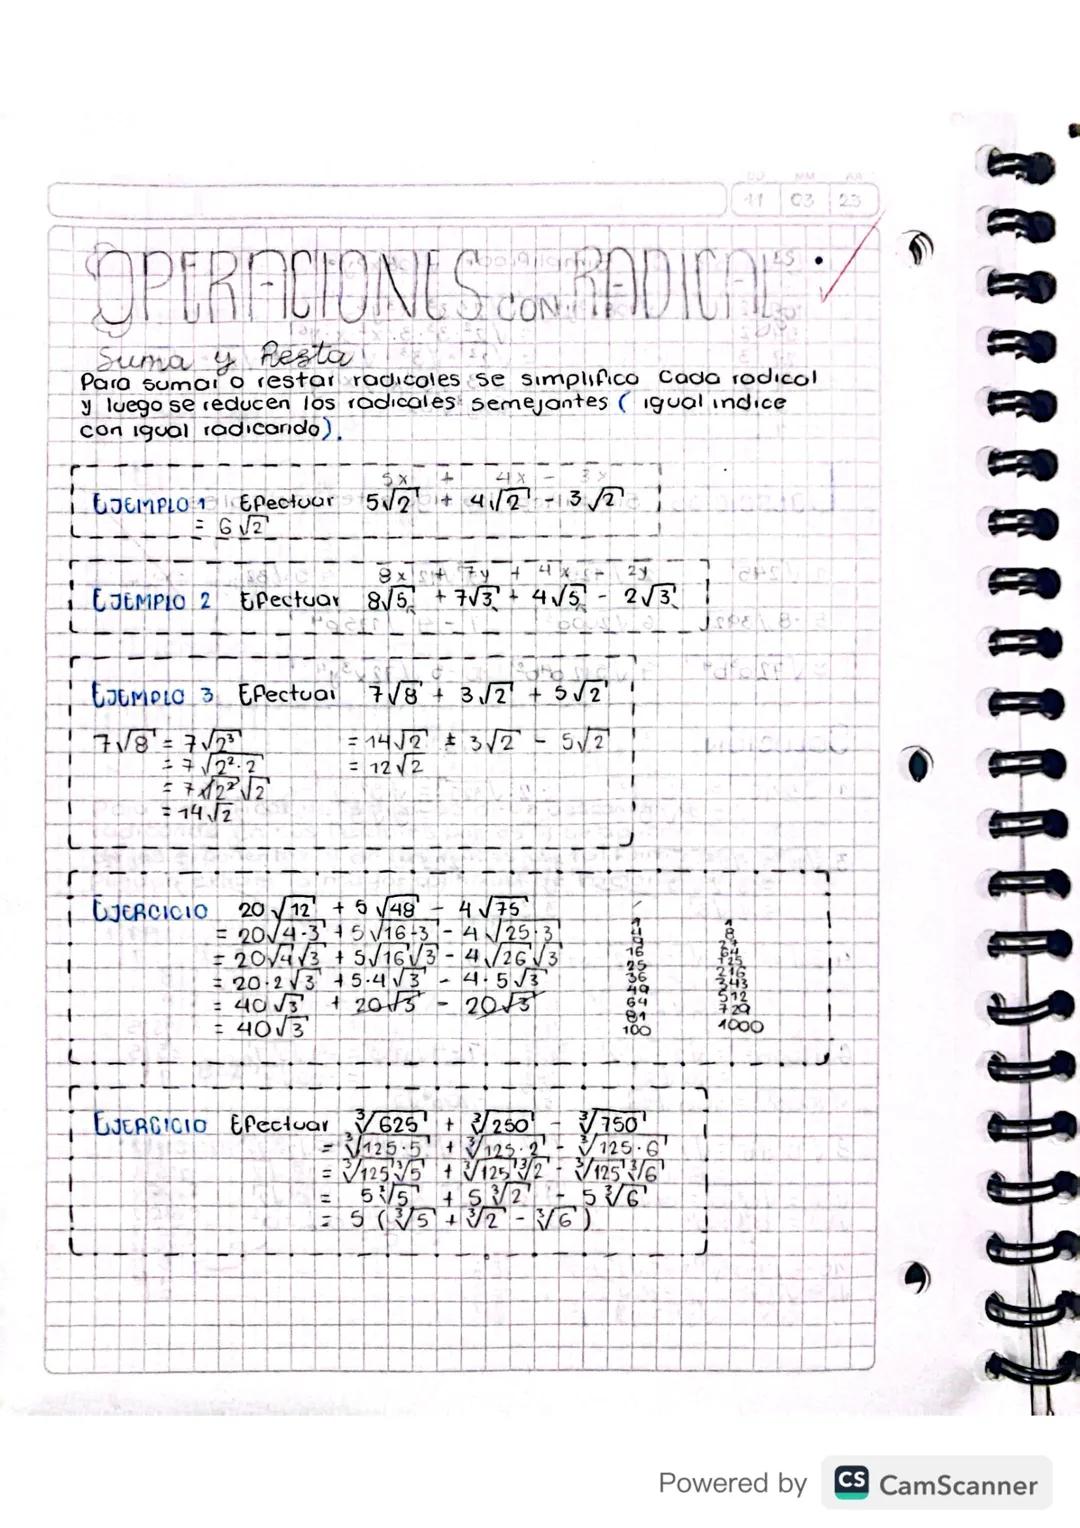 DD MM AA
11 03 23
OPERACIONES CON RADICALES
Suma y Resta
Para sumar o restar radicales se simplifica cada radical
y luego se reducen los radicales semejantes ( igual indice
con igual radicando).
5x + 4x - 3x
EJEMPLO 1 Efectuar 5√2 + 4√2 - 3√2
= 6√2
8x + 7y + 4x - 2y
EJEMPLO 2 Efectuar 8√5 + 7√3 + 4√5 - 2√3
EJEMPLO 3 Efectuar 7√8 + 3√2 + 5√2
7√8 = 7√2³ = 14√2 ± 3√2 - 5√2
= 7√2²·2 = 12√2
= 7√2²√2
= 14√2
EJERCICIO 20√12 + 5√48 - 4√75
= 20√4·3 + 5√16·3 - 4√25·3
= 20√4√3 + 5√16√3 - 4√26√3
= 20·2√3 + 5·4√3 - 4·5√3
= 40√3 + 20√3 - 20√3
= 40√3
1 1
4 8
9 27
16 64
25 125
36 216
49 343
64 512
81 729
100 1000
EJERCICIO Efectuar ∛625 + ∛250 - ∛750
= ∛125·5 + ∛125·2 - ∛125·6
= ∛125∛5 + ∛125∛2 - ∛125∛6
= 5∛5 + 5∛2 - 5∛6
= 5 (∛5 + ∛2 - ∛6)
Powered by CS CamScanner